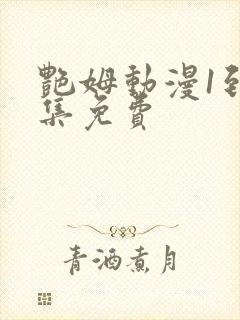 艷姆動漫1到
集免費
青酒煮月